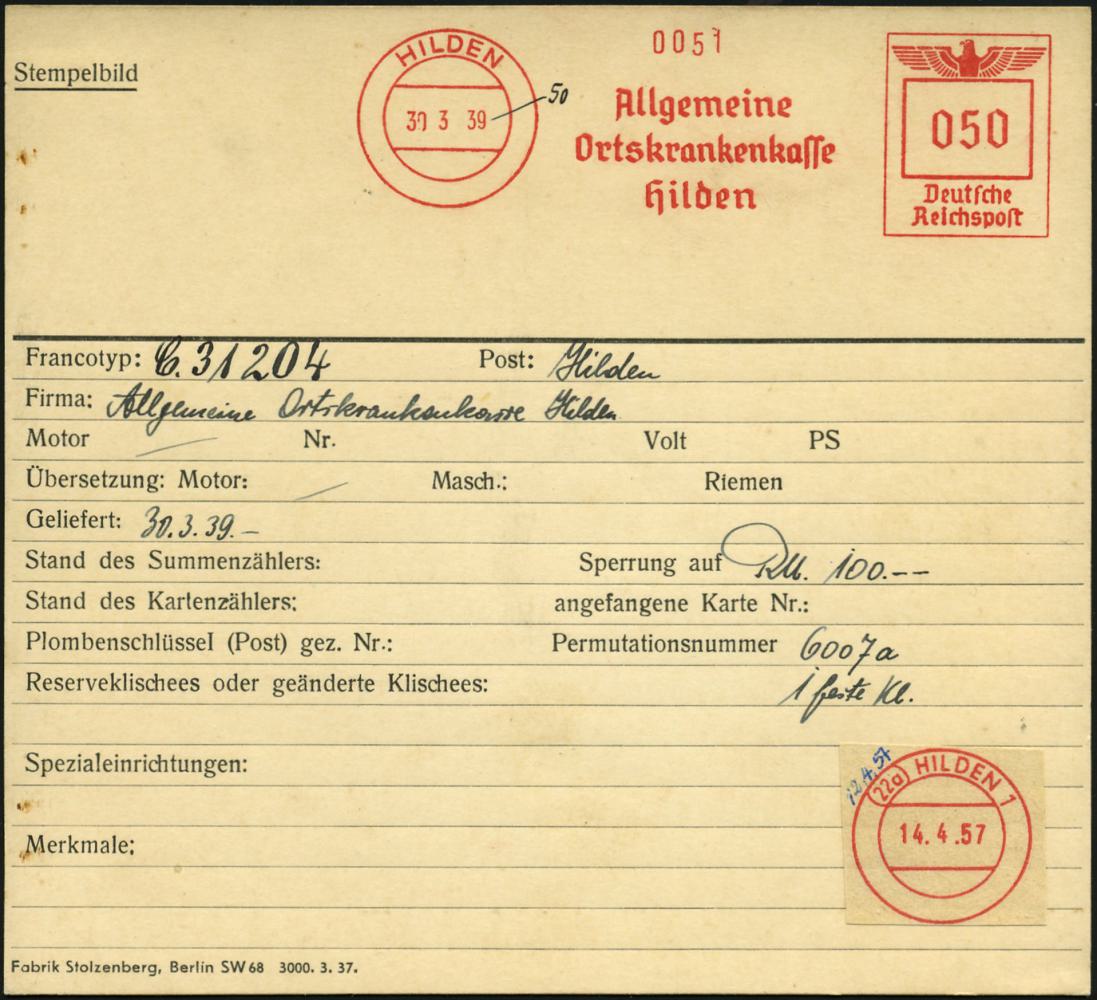 Stempelbild
HILDEN
30 3 39
50
0051
Allgemeine
Ortskrankenkasse
Hilden
050
Deutsche
Reichspost
Francotyp: C. 31204 Post: Hilden
Firma: Allgemeine Ortskrankenkasse Hilden
Motor Nr. Volt PS
Übersetzung: Motor: Masch.: Riemen
Geliefert: 30.3.39.-
Stand des Summenzählers: Sperrung auf RM. 100.--
Stand des Kartenzählers: angefangene Karte Nr.:
Plombenschlüssel (Post) gez. Nr.: Permutationsnummer 6007a
Reserveklischees oder geänderte Klischees: 1 feste Kl.
Spezialeinrichtungen:
12.4.57
(22a) HILDEN 1
14.4.57
Merkmale:
Fabrik Stolzenberg, Berlin SW 68 3000. 3. 37.